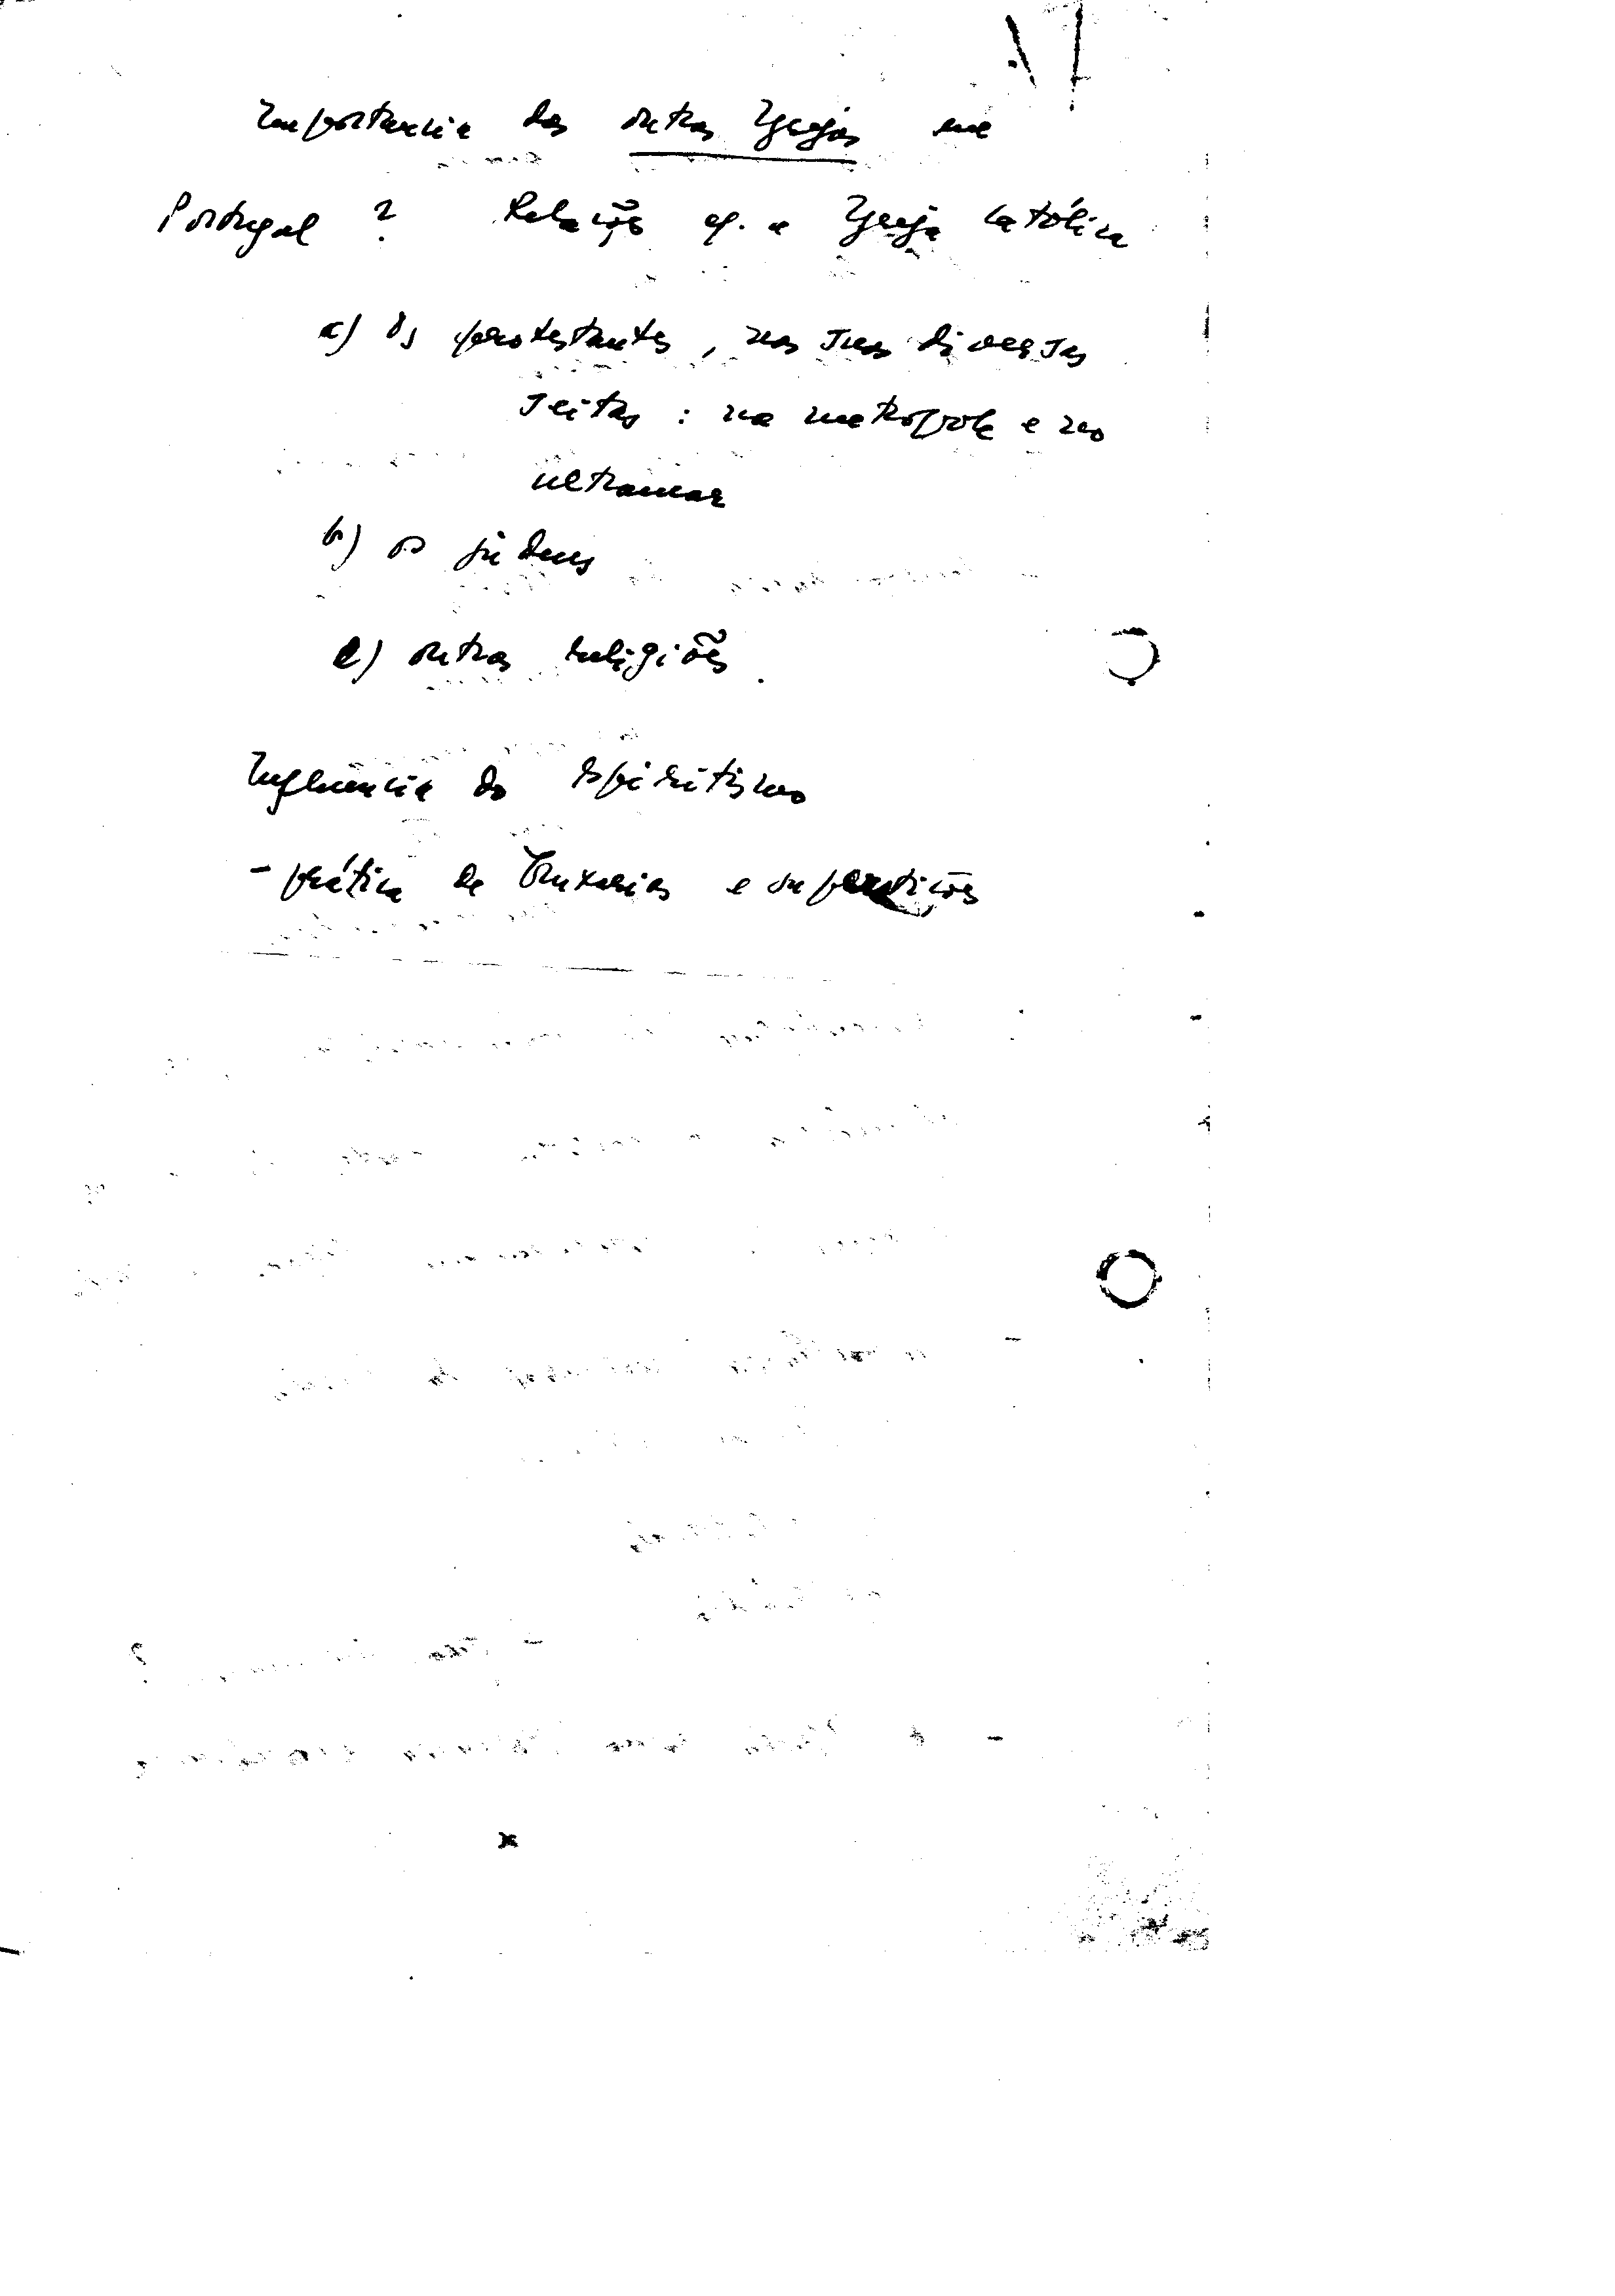 Importancia das outras Igrejas em
Portugal ? Relações c/. a Igreja Católica
a) Os protestantes, nas suas diversas
seitas : na metropole e no
ultramar
b) os judeus
c) outras religiões.
Influência do Espiritismo
- prática de Bruxarias e superstições